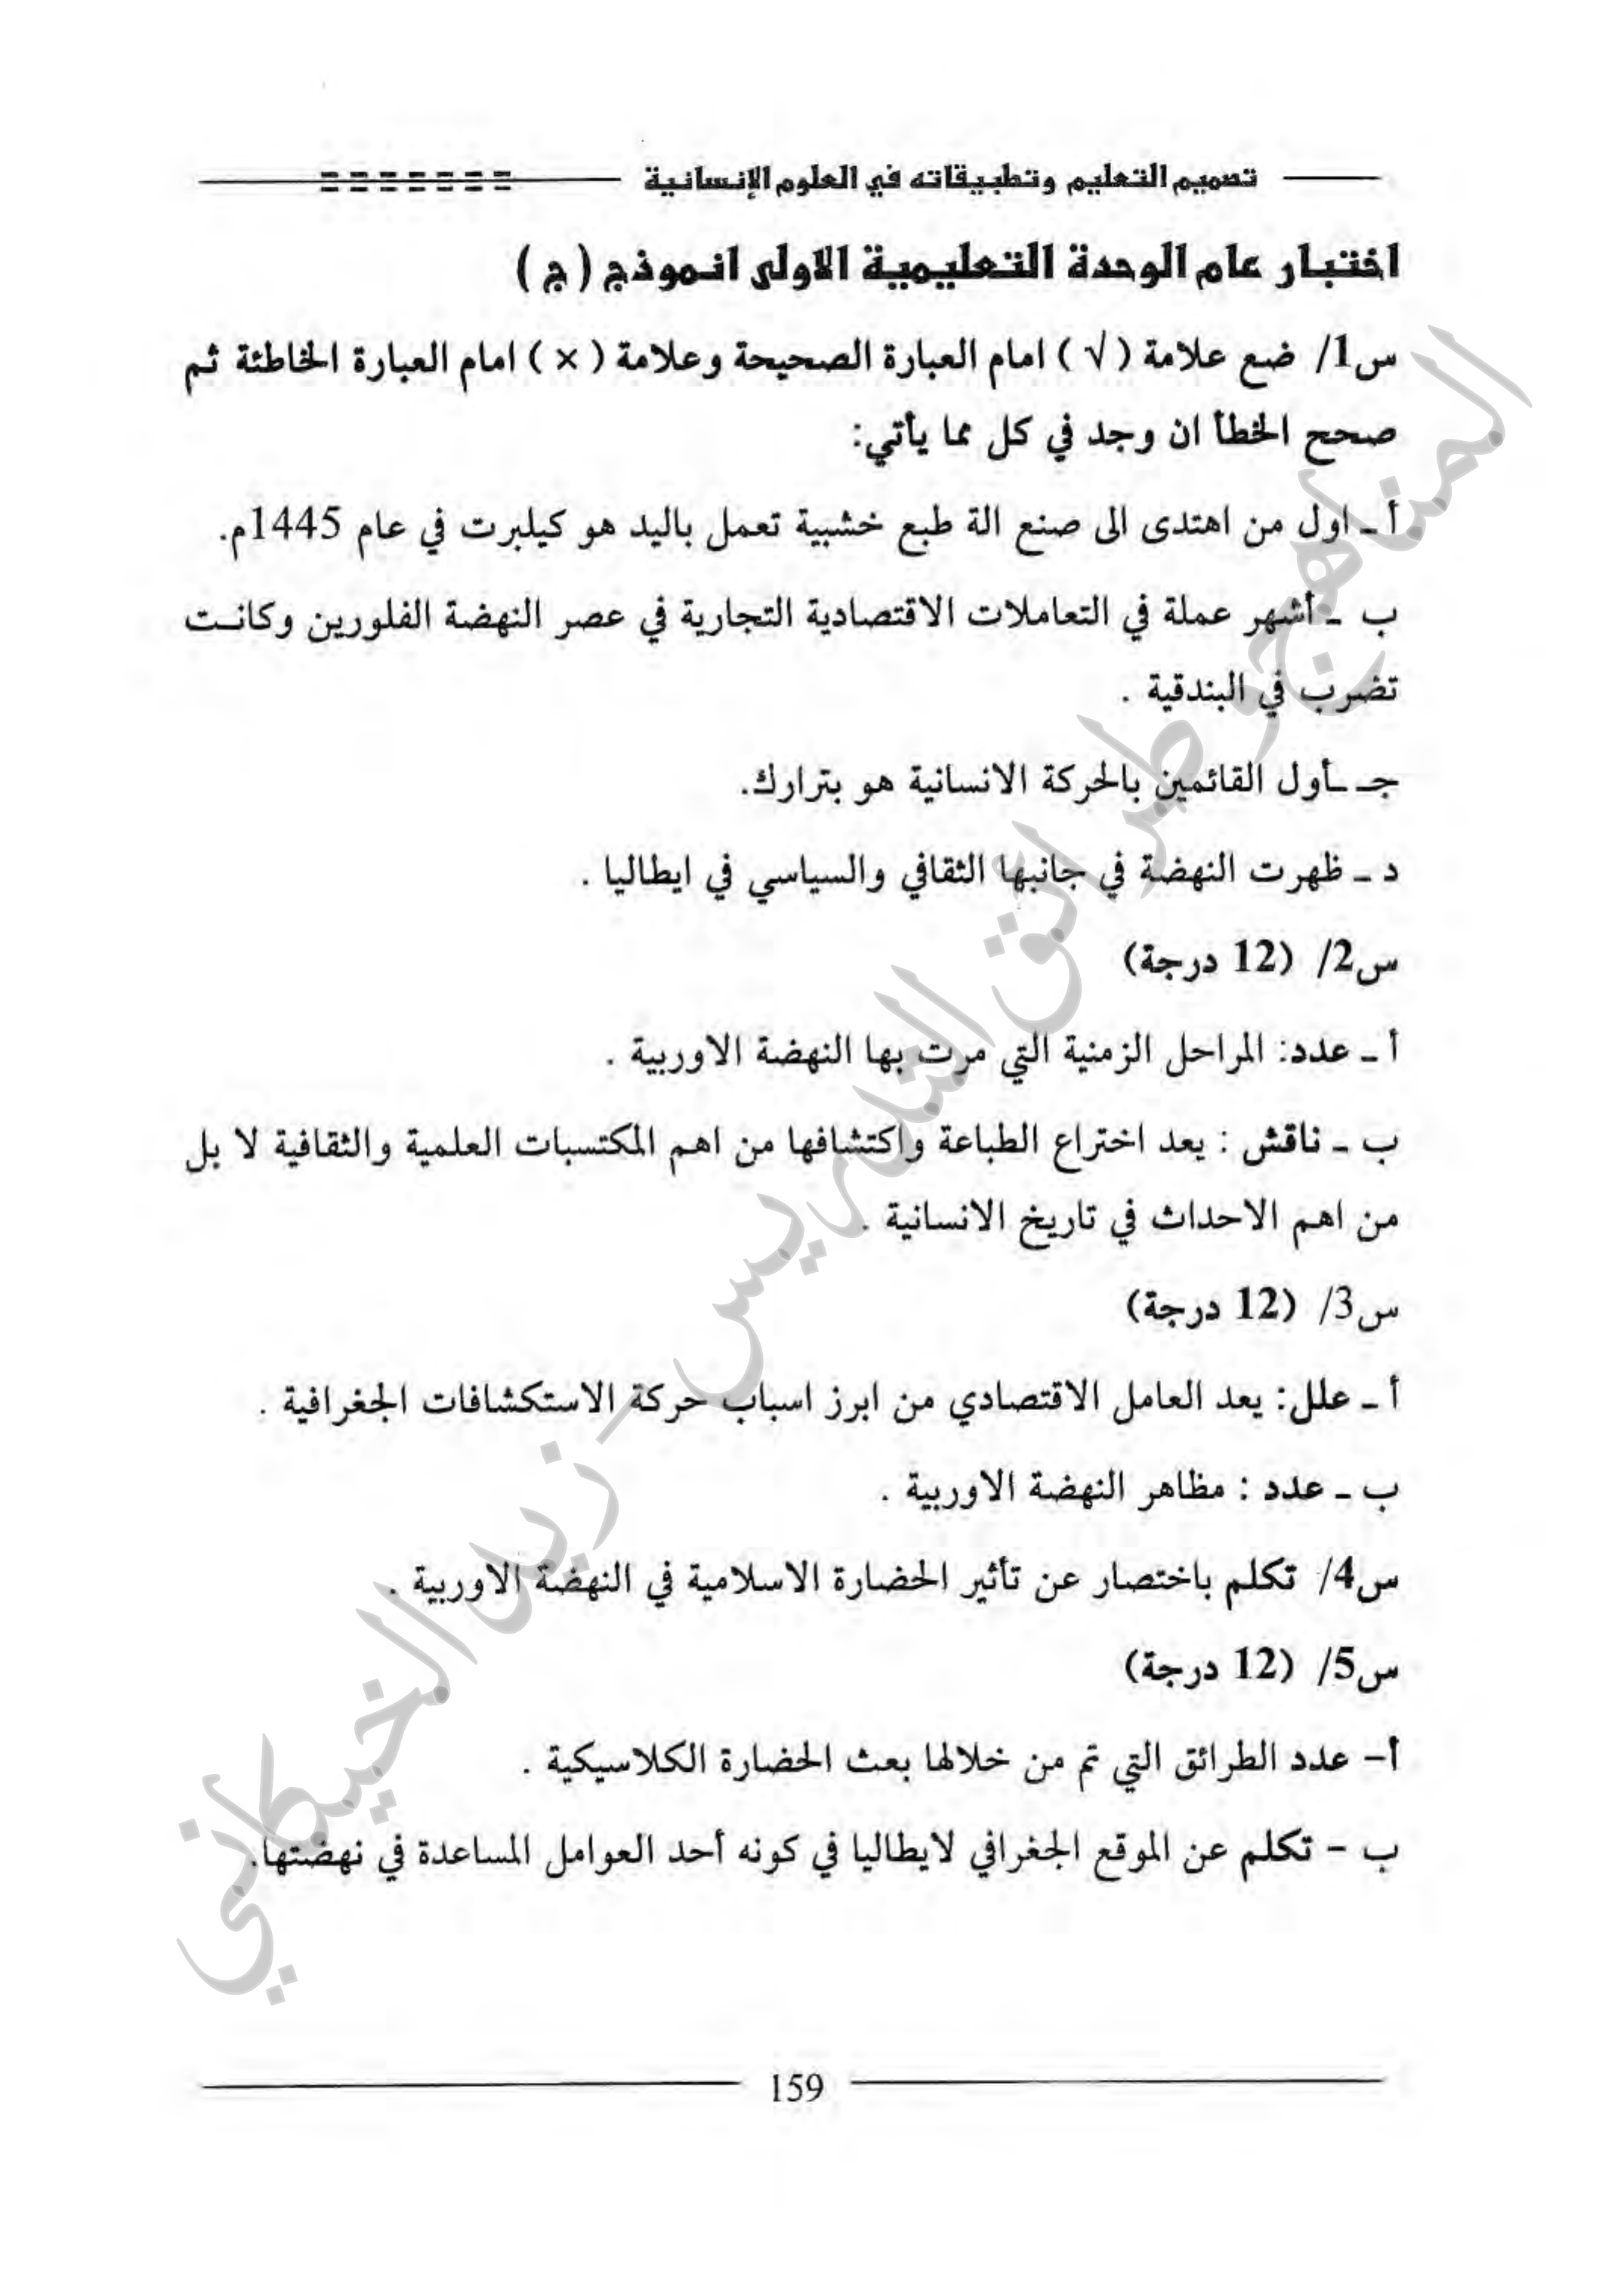 تصميم التعليم وتطبيقاته في العلوم الإنسانية
اختبار عام الوحدة التعليمية الاولى انموذج ( ج )
س1/ ضع علامة ( √ ) امام العبارة الصحيحة وعلامة ( × ) امام العبارة الخاطئة ثم
صحح الخطأ ان وجد في كل مما يأتي:
أ ـ اول من اهتدى الى صنع الة طبع خشبية تعمل باليد هو كيلبرت في عام 1445م.
ب ـ أشهر عملة في التعاملات الاقتصادية التجارية في عصر النهضة الفلورين وكانت
تضرب في البندقية .
جـ ـ أول القائمين بالحركة الانسانية هو بترارك.
د ـ ظهرت النهضة في جانبها الثقافي والسياسي في ايطاليا .
س2/ (12 درجة)
أ ـ عدد: المراحل الزمنية التي مرت بها النهضة الاوربية .
ب ـ ناقش : يعد اختراع الطباعة واكتشافها من اهم المكتسبات العلمية والثقافية لا بل
من اهم الاحداث في تاريخ الانسانية .
س3/ (12 درجة)
أ ـ علل: يعد العامل الاقتصادي من ابرز اسباب حركة الاستكشافات الجغرافية .
ب ـ عدد : مظاهر النهضة الاوربية .
س4/ تكلم باختصار عن تأثير الحضارة الاسلامية في النهضة الاوربية .
س5/ (12 درجة)
أ- عدد الطرائق التي تم من خلالها بعث الحضارة الكلاسيكية .
ب - تكلم عن الموقع الجغرافي لايطاليا في كونه أحد العوامل المساعدة في نهضتها.
159
المناهج وطرائق التدريس - زيد الخيكاني